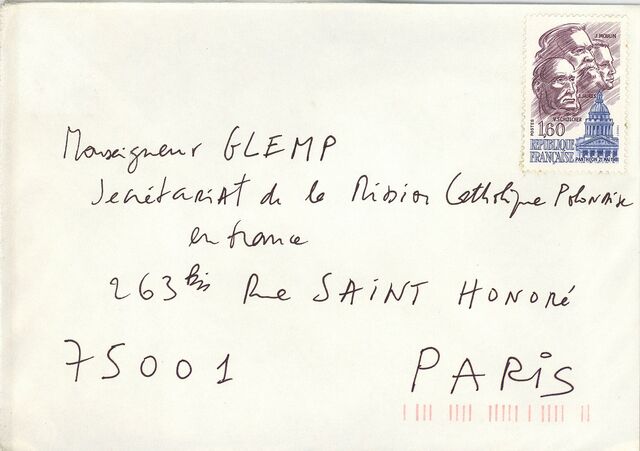 J. MOULIN
J. JAURÈS
V. SCHŒLCHER
POSTES
1,60
REPUBLIQUE
FRANÇAISE
PANTHEON 21 MAI 1981
Monseigneur GLEMP
Secrétariat de la Mission Catholique Polonaise
en france
263 bis Rue SAINT HONORÉ
75001 PARIS